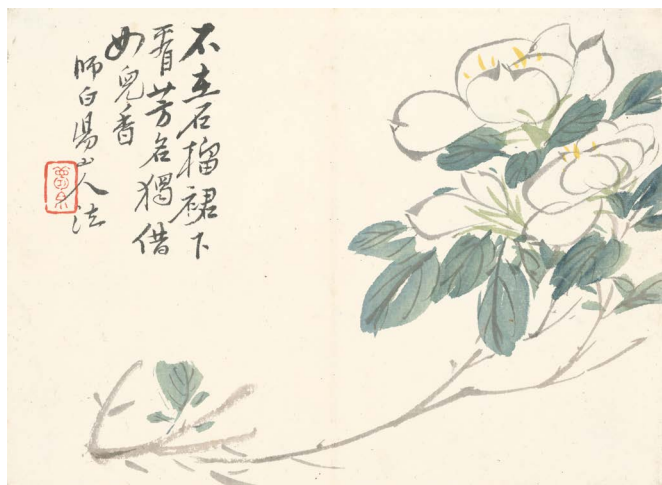 不在石榴裙下
看芳名獨借
女兒香
師白陽山人法